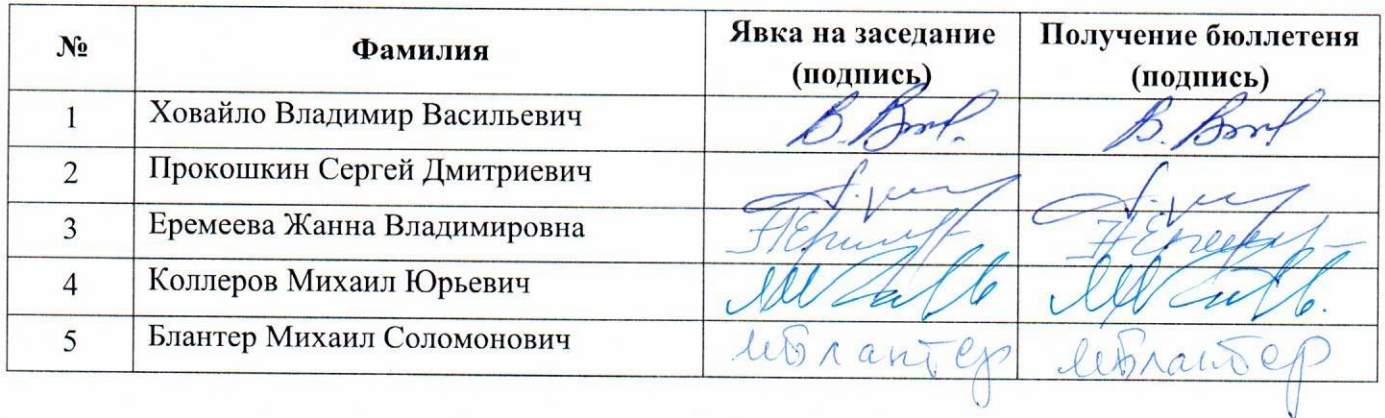 № Фамилия Явка на заседание (подпись) Получение бюллетеня (подпись)
1 Ховайло Владимир Васильевич
2 Прокошкин Сергей Дмитриевич
3 Еремеева Жанна Владимировна
4 Коллеров Михаил Юрьевич
5 Блантер Михаил Соломонович МБлантер МБлантер